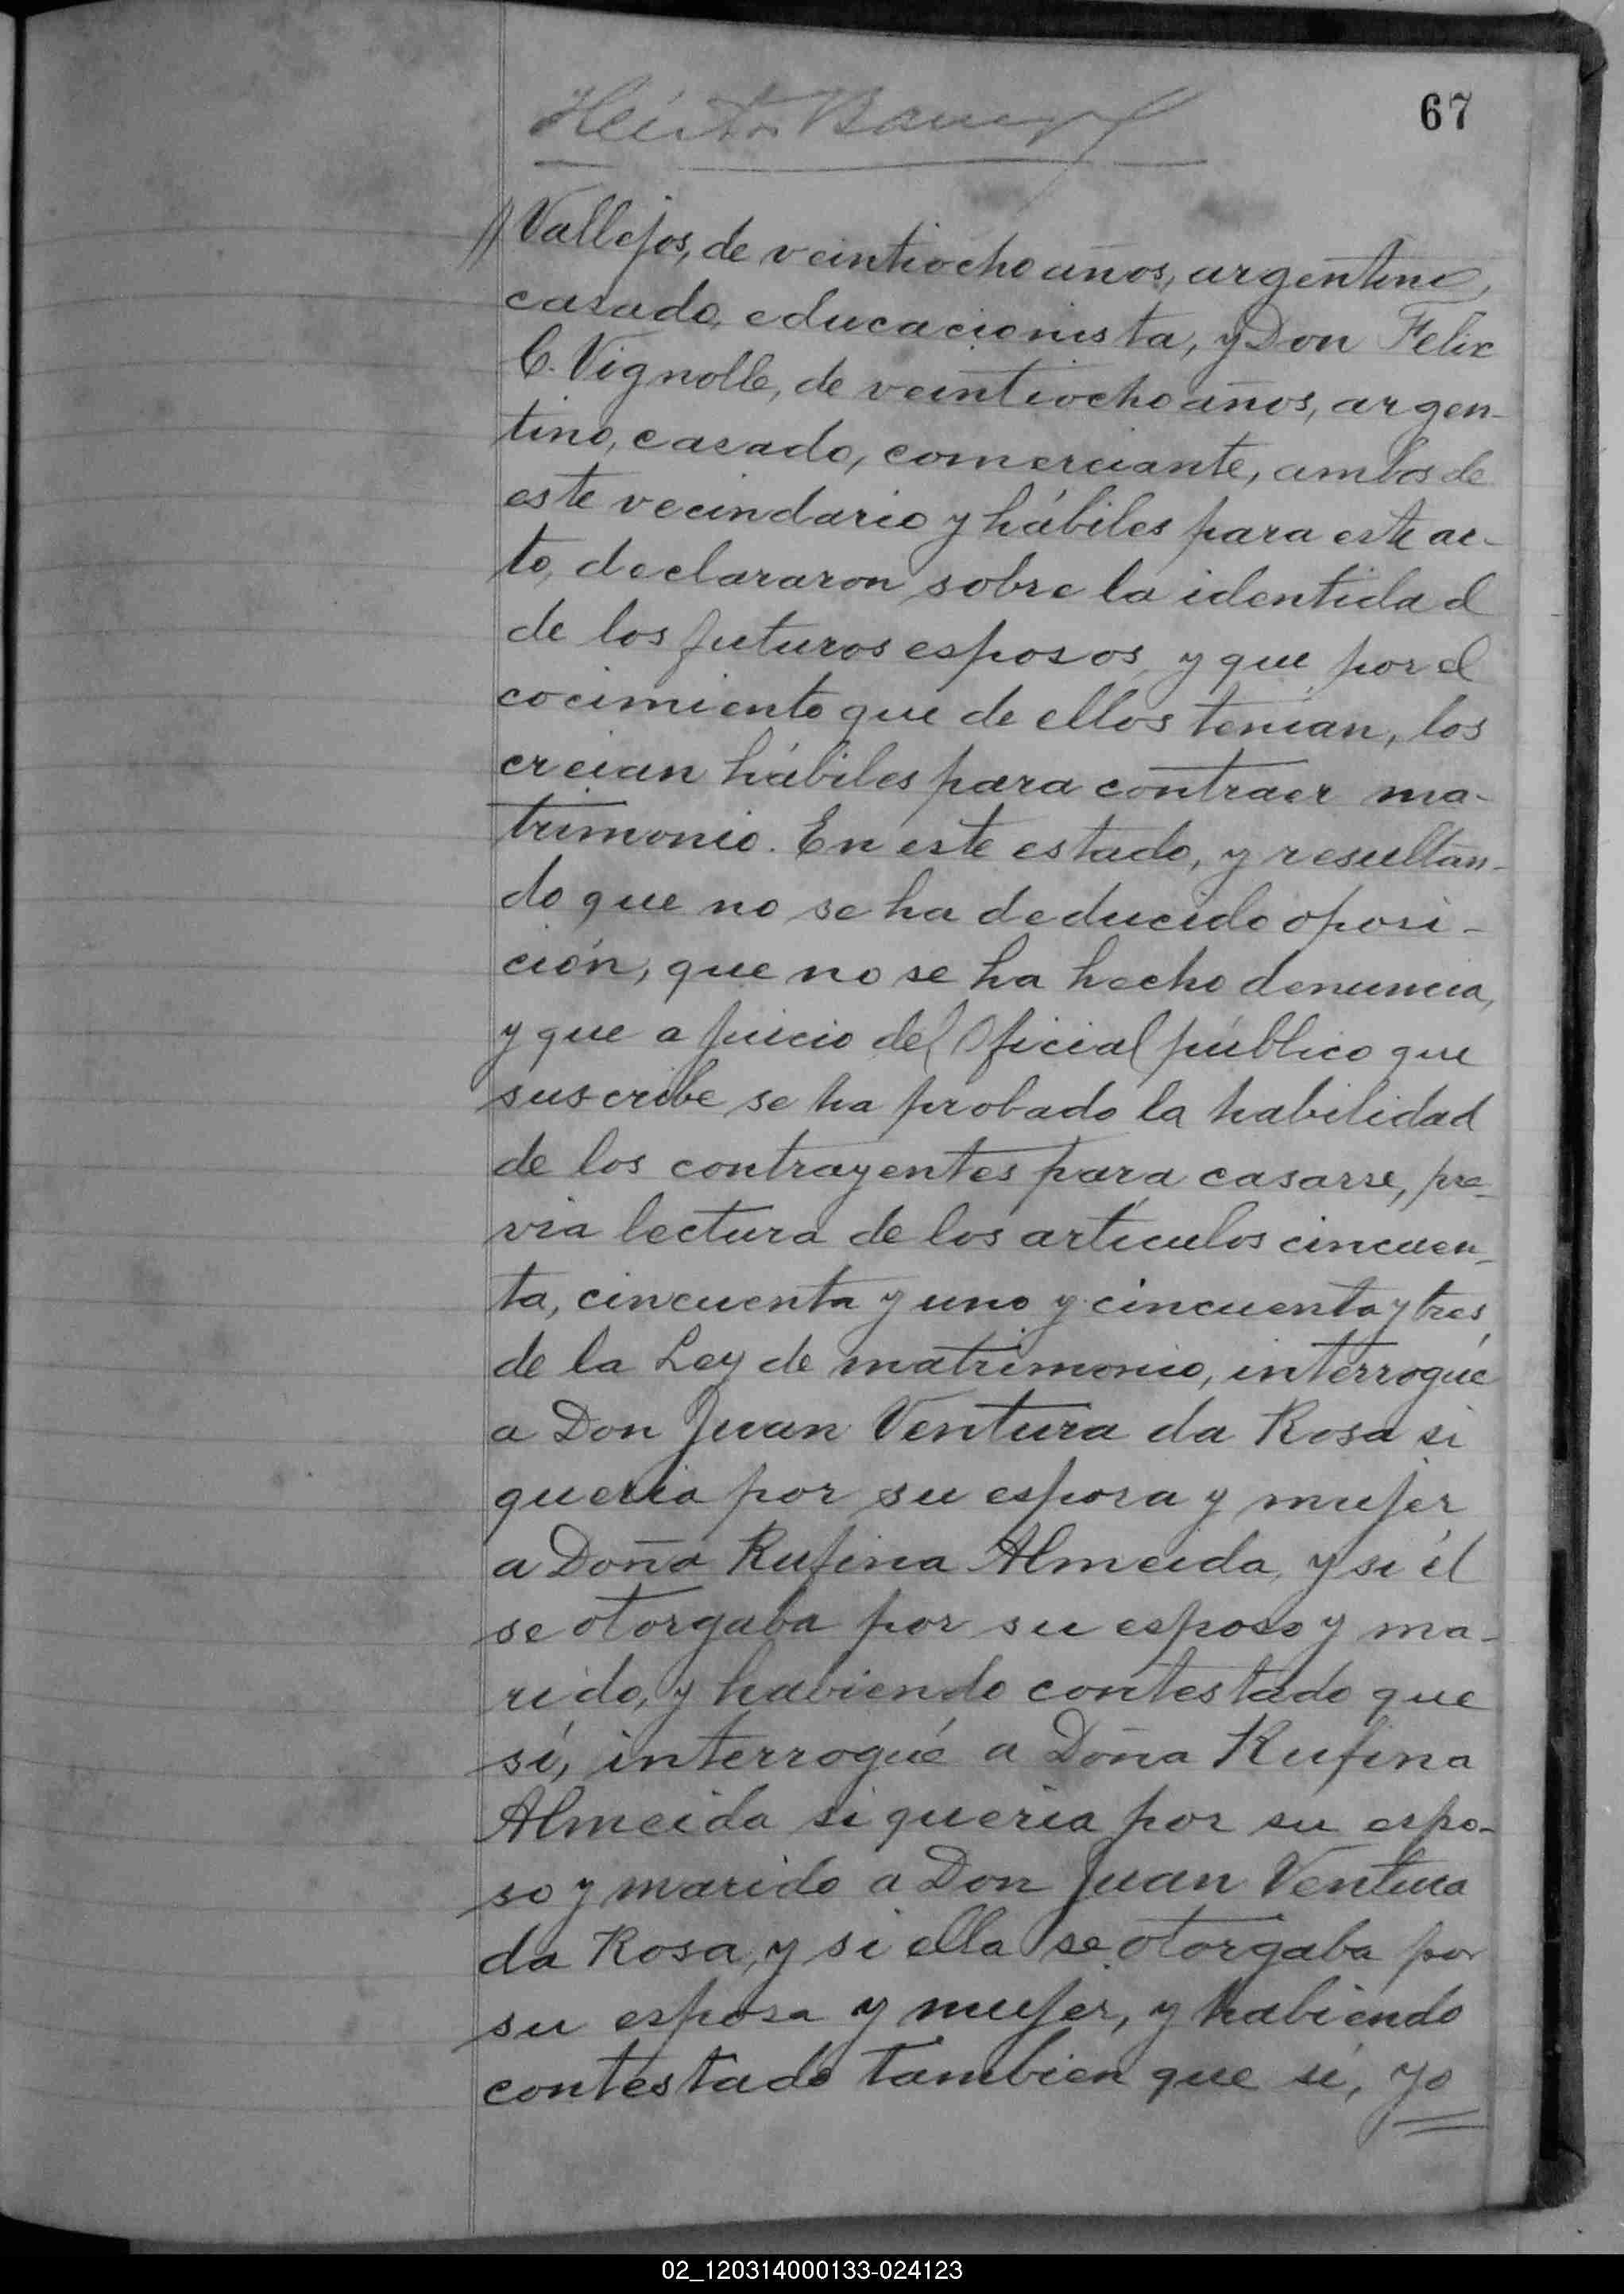 67
Vallejos, de veintiocho años, argentino,
casado, educacionista, y Don Felix
C. Vignolle, de veintiocho años, argen-
tino, casado, comerciante, ambos de
este vecindario y hábiles para este ac-
to, declararon sobre la identidad
de los futuros esposos, y que por el
cocimiento que de ellos tenían, los
creian hábiles para contraer ma-
trimonio. En este estado, y resultan-
do que no se ha deducido oposi-
ción, que no se ha hecho denuncia,
y que a juicio del Oficial público que
suscribe se ha probado la habilidad
de los contrayentes para casarse, pre-
via lectura de los artículos cincuen-
ta, cincuenta y uno y cincuenta y tres
de la Ley de matrimonio, interrogué
a Don Juan Ventura da Rosa si
queria por su esposa y mujer
a Doña Rufina Almeida, y si él
se otorgaba por su esposo y ma-
rido, y habiendo contestado que
sí, interrogué a Doña Rufina
Almeida si queria por su espo-
so y marido a Don Juan Ventura
da Rosa, y si ella se otorgaba por
su esposa y mujer, y habiendo
contestado tambien que sí, yo
02_120314000133-024123